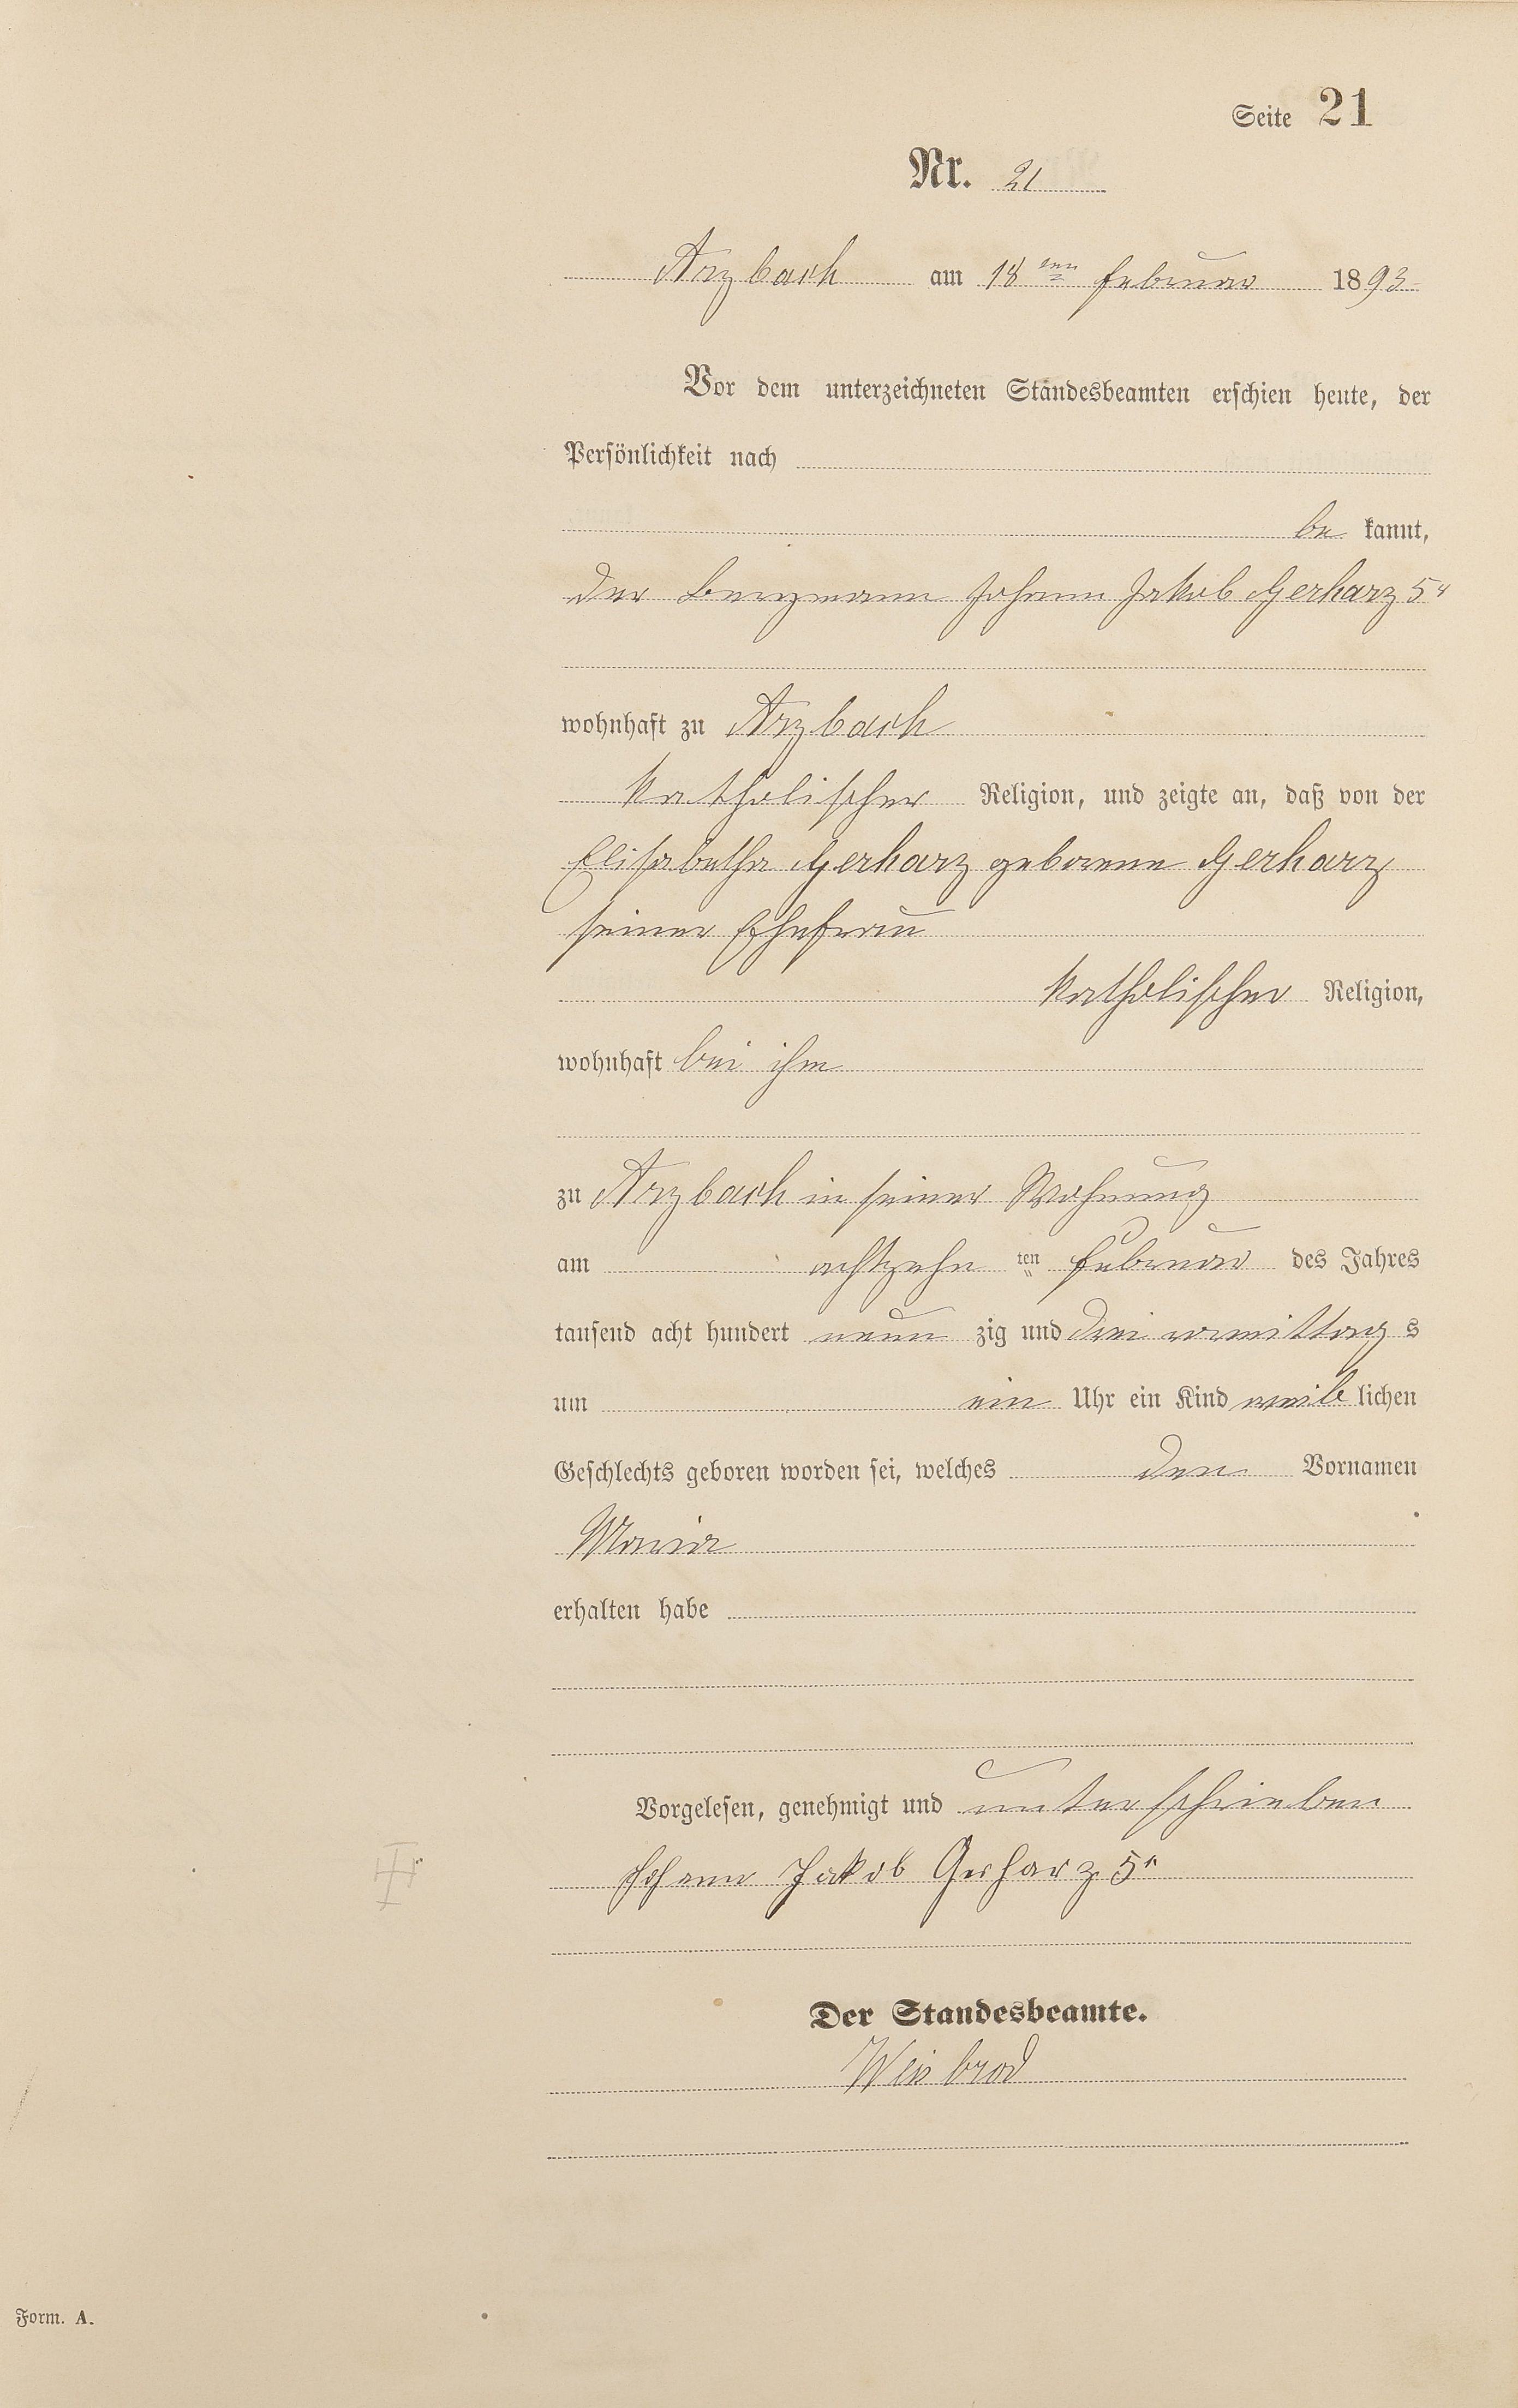 Seite 21
Nr. 21
Arzbach am 18ten Februar 1893
Vor dem unterzeichneten Standesbeamten erschien heute, der
Persönlichkeit nach
be kannt,
der Bergmann Johann Jakob Gerharz 5r
wohnhaft zu Arzbach
katholischer Religion, und zeigte an, daß von der
Elisabetha Gerharz geborene Gerharz
seiner Ehefrau
katholischer Religion,
wohnhaft bei ihm
zu Arzbach in seiner Wohnung
am achtzehn ten Februar des Jahres
tausend acht hundert neun zig und drei vormittag s
um ein Uhr ein Kind weib lichen
Geschlechts geboren worden sei, welches den Vornamen
Maria
erhalten habe
Vorgelesen, genehmigt und unterschrieben
Johann Jakob Gerharz 5r
Der Standesbeamte.
Weisbrod
Form. A.